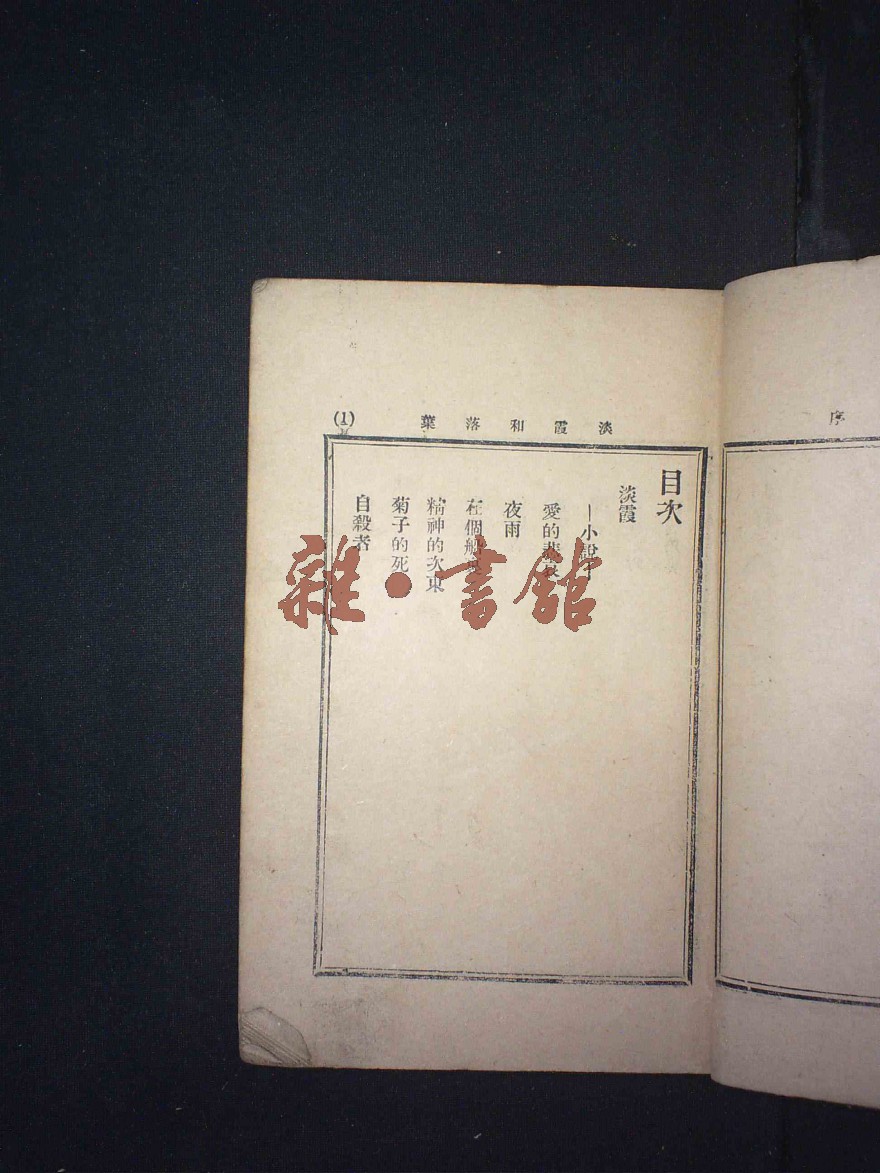 淡霞和落葉
(1)
序
目次
淡霞
—小說—
愛的
夜雨
在個
精神的次東
菊子的死
自殺者
雜·書館